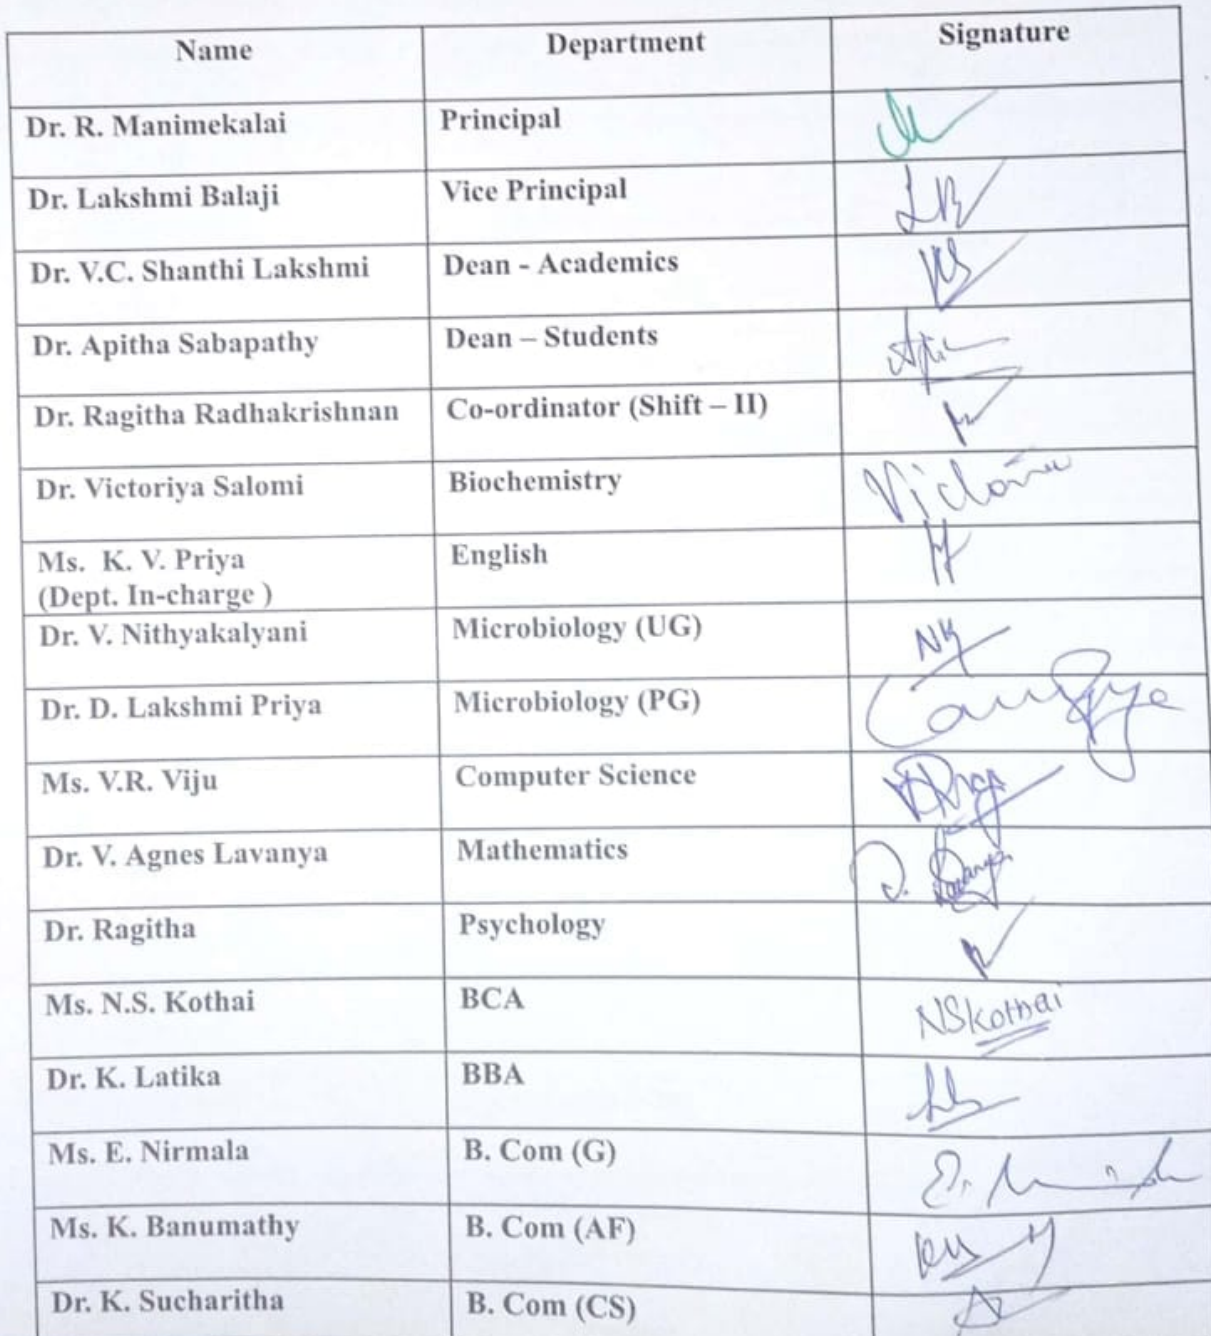 Name Department Signature
Dr. R. Manimekalai Principal
Dr. Lakshmi Balaji Vice Principal LB
Dr. V.C. Shanthi Lakshmi Dean - Academics
Dr. Apitha Sabapathy Dean – Students
Dr. Ragitha Radhakrishnan Co-ordinator (Shift – II)
Dr. Victoriya Salomi Biochemistry
Ms. K. V. Priya English
(Dept. In-charge )
Dr. V. Nithyakalyani Microbiology (UG) NK
Dr. D. Lakshmi Priya Microbiology (PG)
Ms. V.R. Viju Computer Science
Dr. V. Agnes Lavanya Mathematics
Dr. Ragitha Psychology
Ms. N.S. Kothai BCA NSKothai
Dr. K. Latika BBA
Ms. E. Nirmala B. Com (G)
Ms. K. Banumathy B. Com (AF)
Dr. K. Sucharitha B. Com (CS)